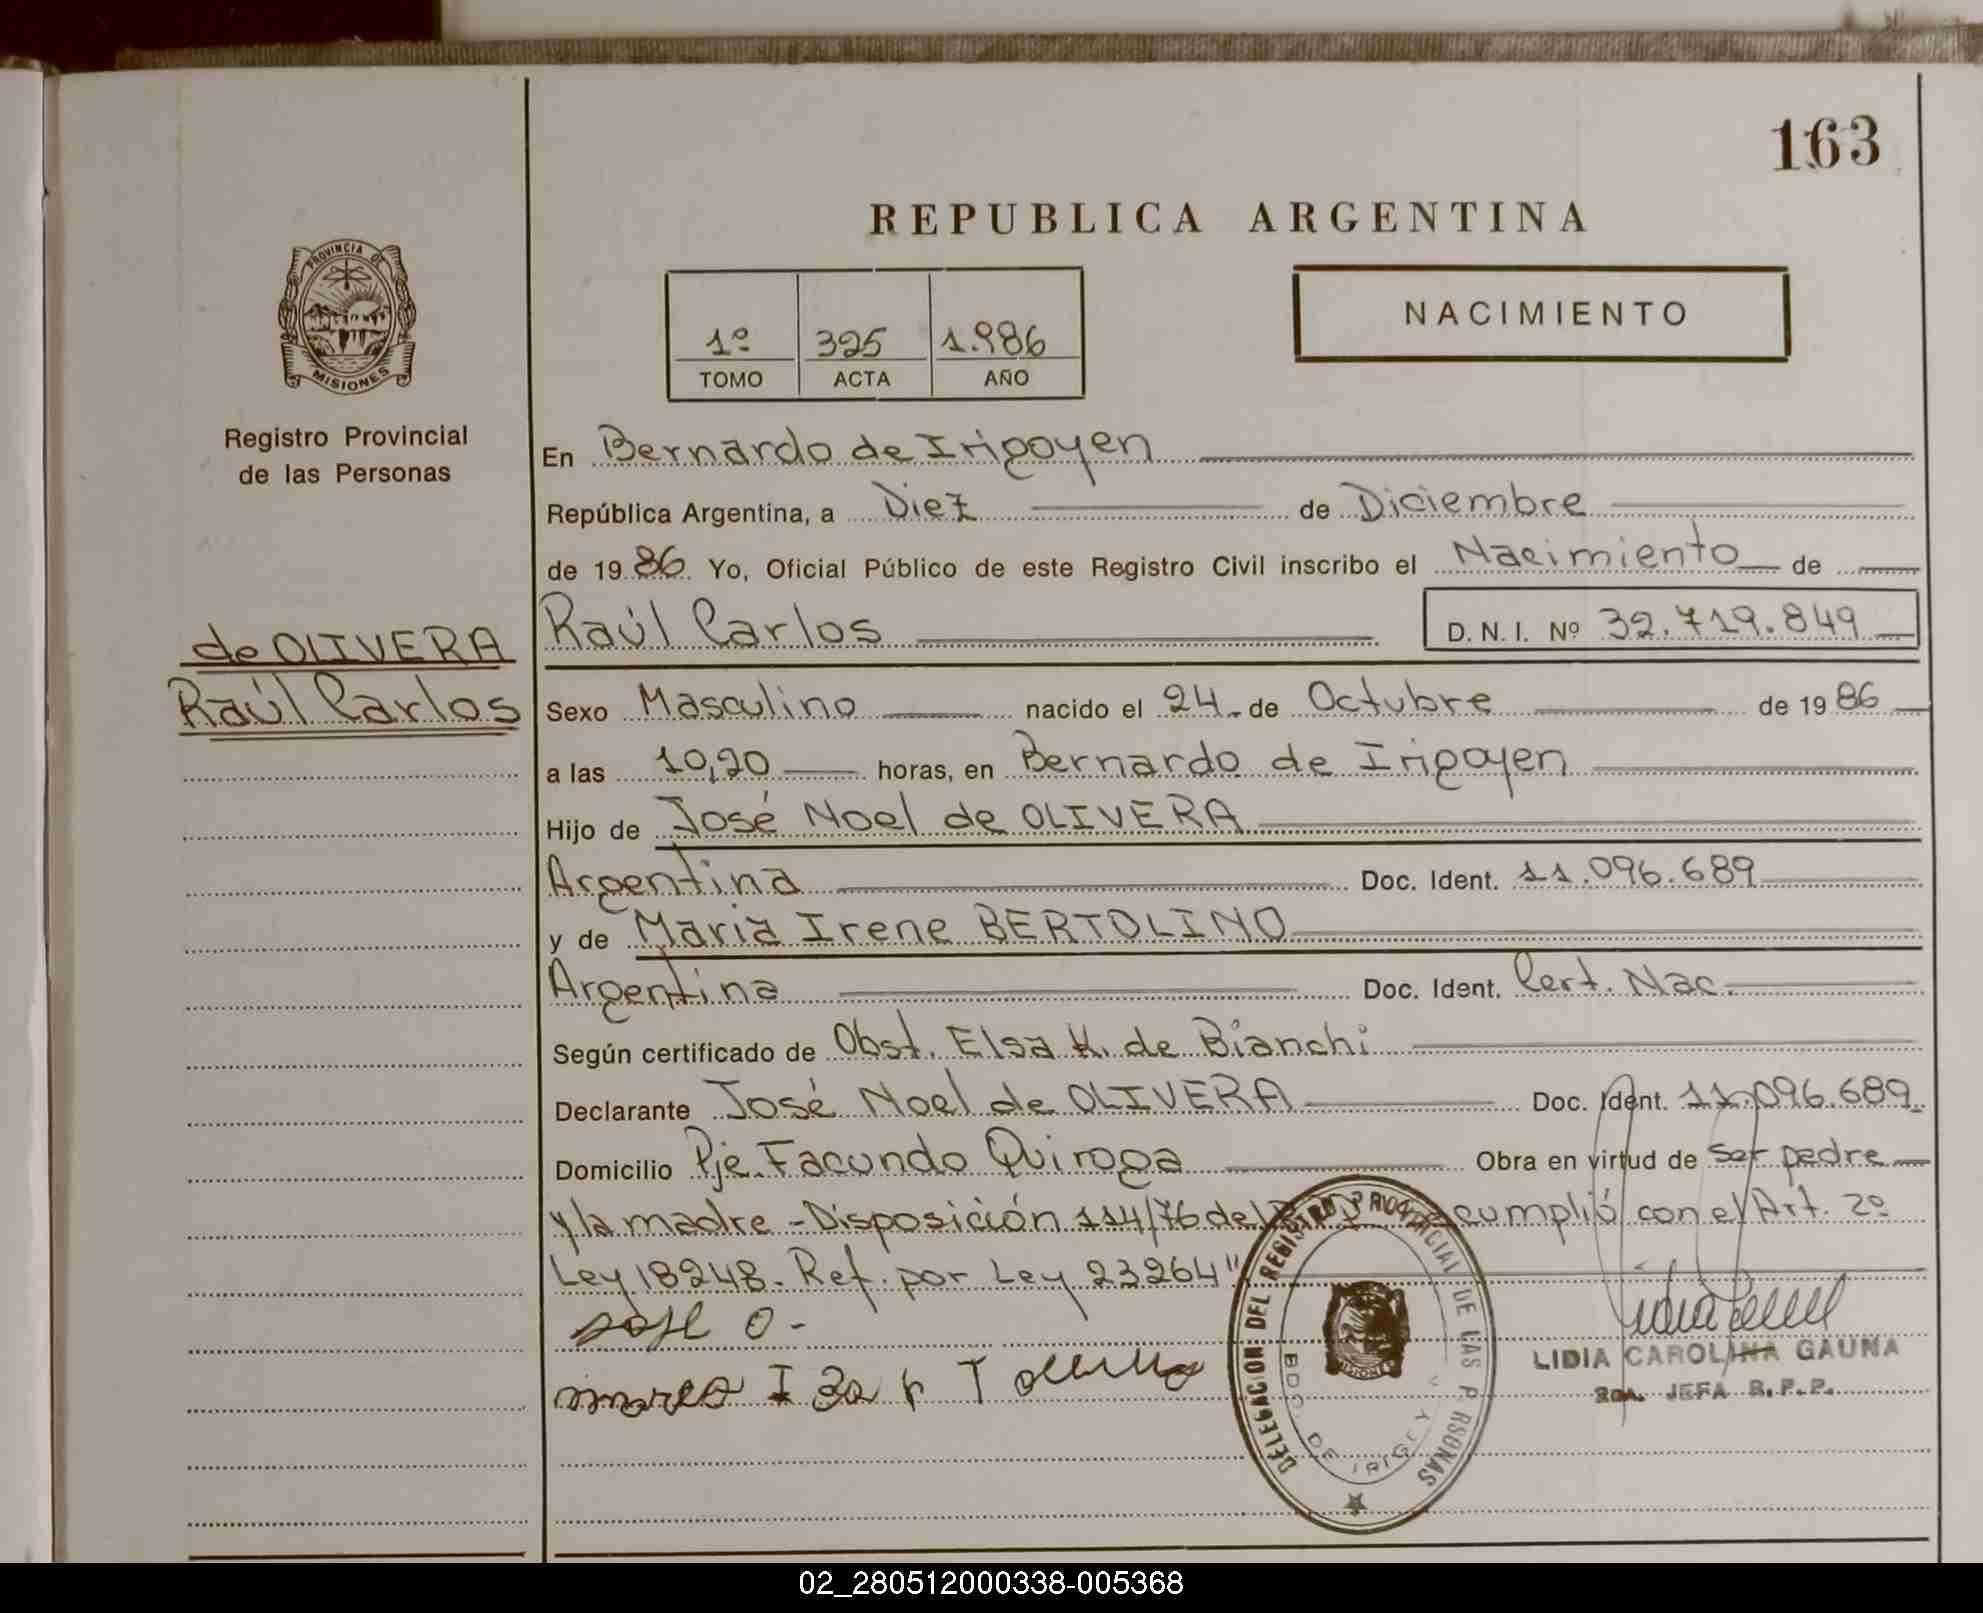 163
REPUBLICA ARGENTINA
PROVINCIA DE
MISIONES
Registro Provincial
de las Personas
1º 325 1.986
TOMO ACTA AÑO
NACIMIENTO
En Bernardo de Irigoyen
República Argentina, a Diez de Diciembre
de 1986 Yo, Oficial Público de este Registro Civil inscribo el Nacimiento de
Raúl Carlos D. N. I. Nº 32.719.849
de OLIVERA
Raúl Carlos
Sexo Masculino nacido el 24 de Octubre de 1986
a las 10,20 horas, en Bernardo de Irigoyen
Hijo de José Noel de OLIVERA
Argentina Doc. Ident. 11.096.689
y de Maria Irene BERTOLINO
Argentina Doc. Ident. Cert. Nac.
Según certificado de Obst. Elsa K. de Bianchi
Declarante José Noel de OLIVERA Doc. Ident. 11.096.689
Domicilio Pje. Facundo Quiroga Obra en virtud de ser padre
y la madre - Disposición 114/76 del cumplió con el Art. 2º
Ley 18248. Ref. por Ley 23264"
DELEGACION DEL REGISTRO PROVINCIAL DE LAS P RSONAS
BDO. DE IRIGOY
MISIONES
LIDIA CAROLINA GAUNA
2da. JEFA R.P.P.
02_280512000338-005368